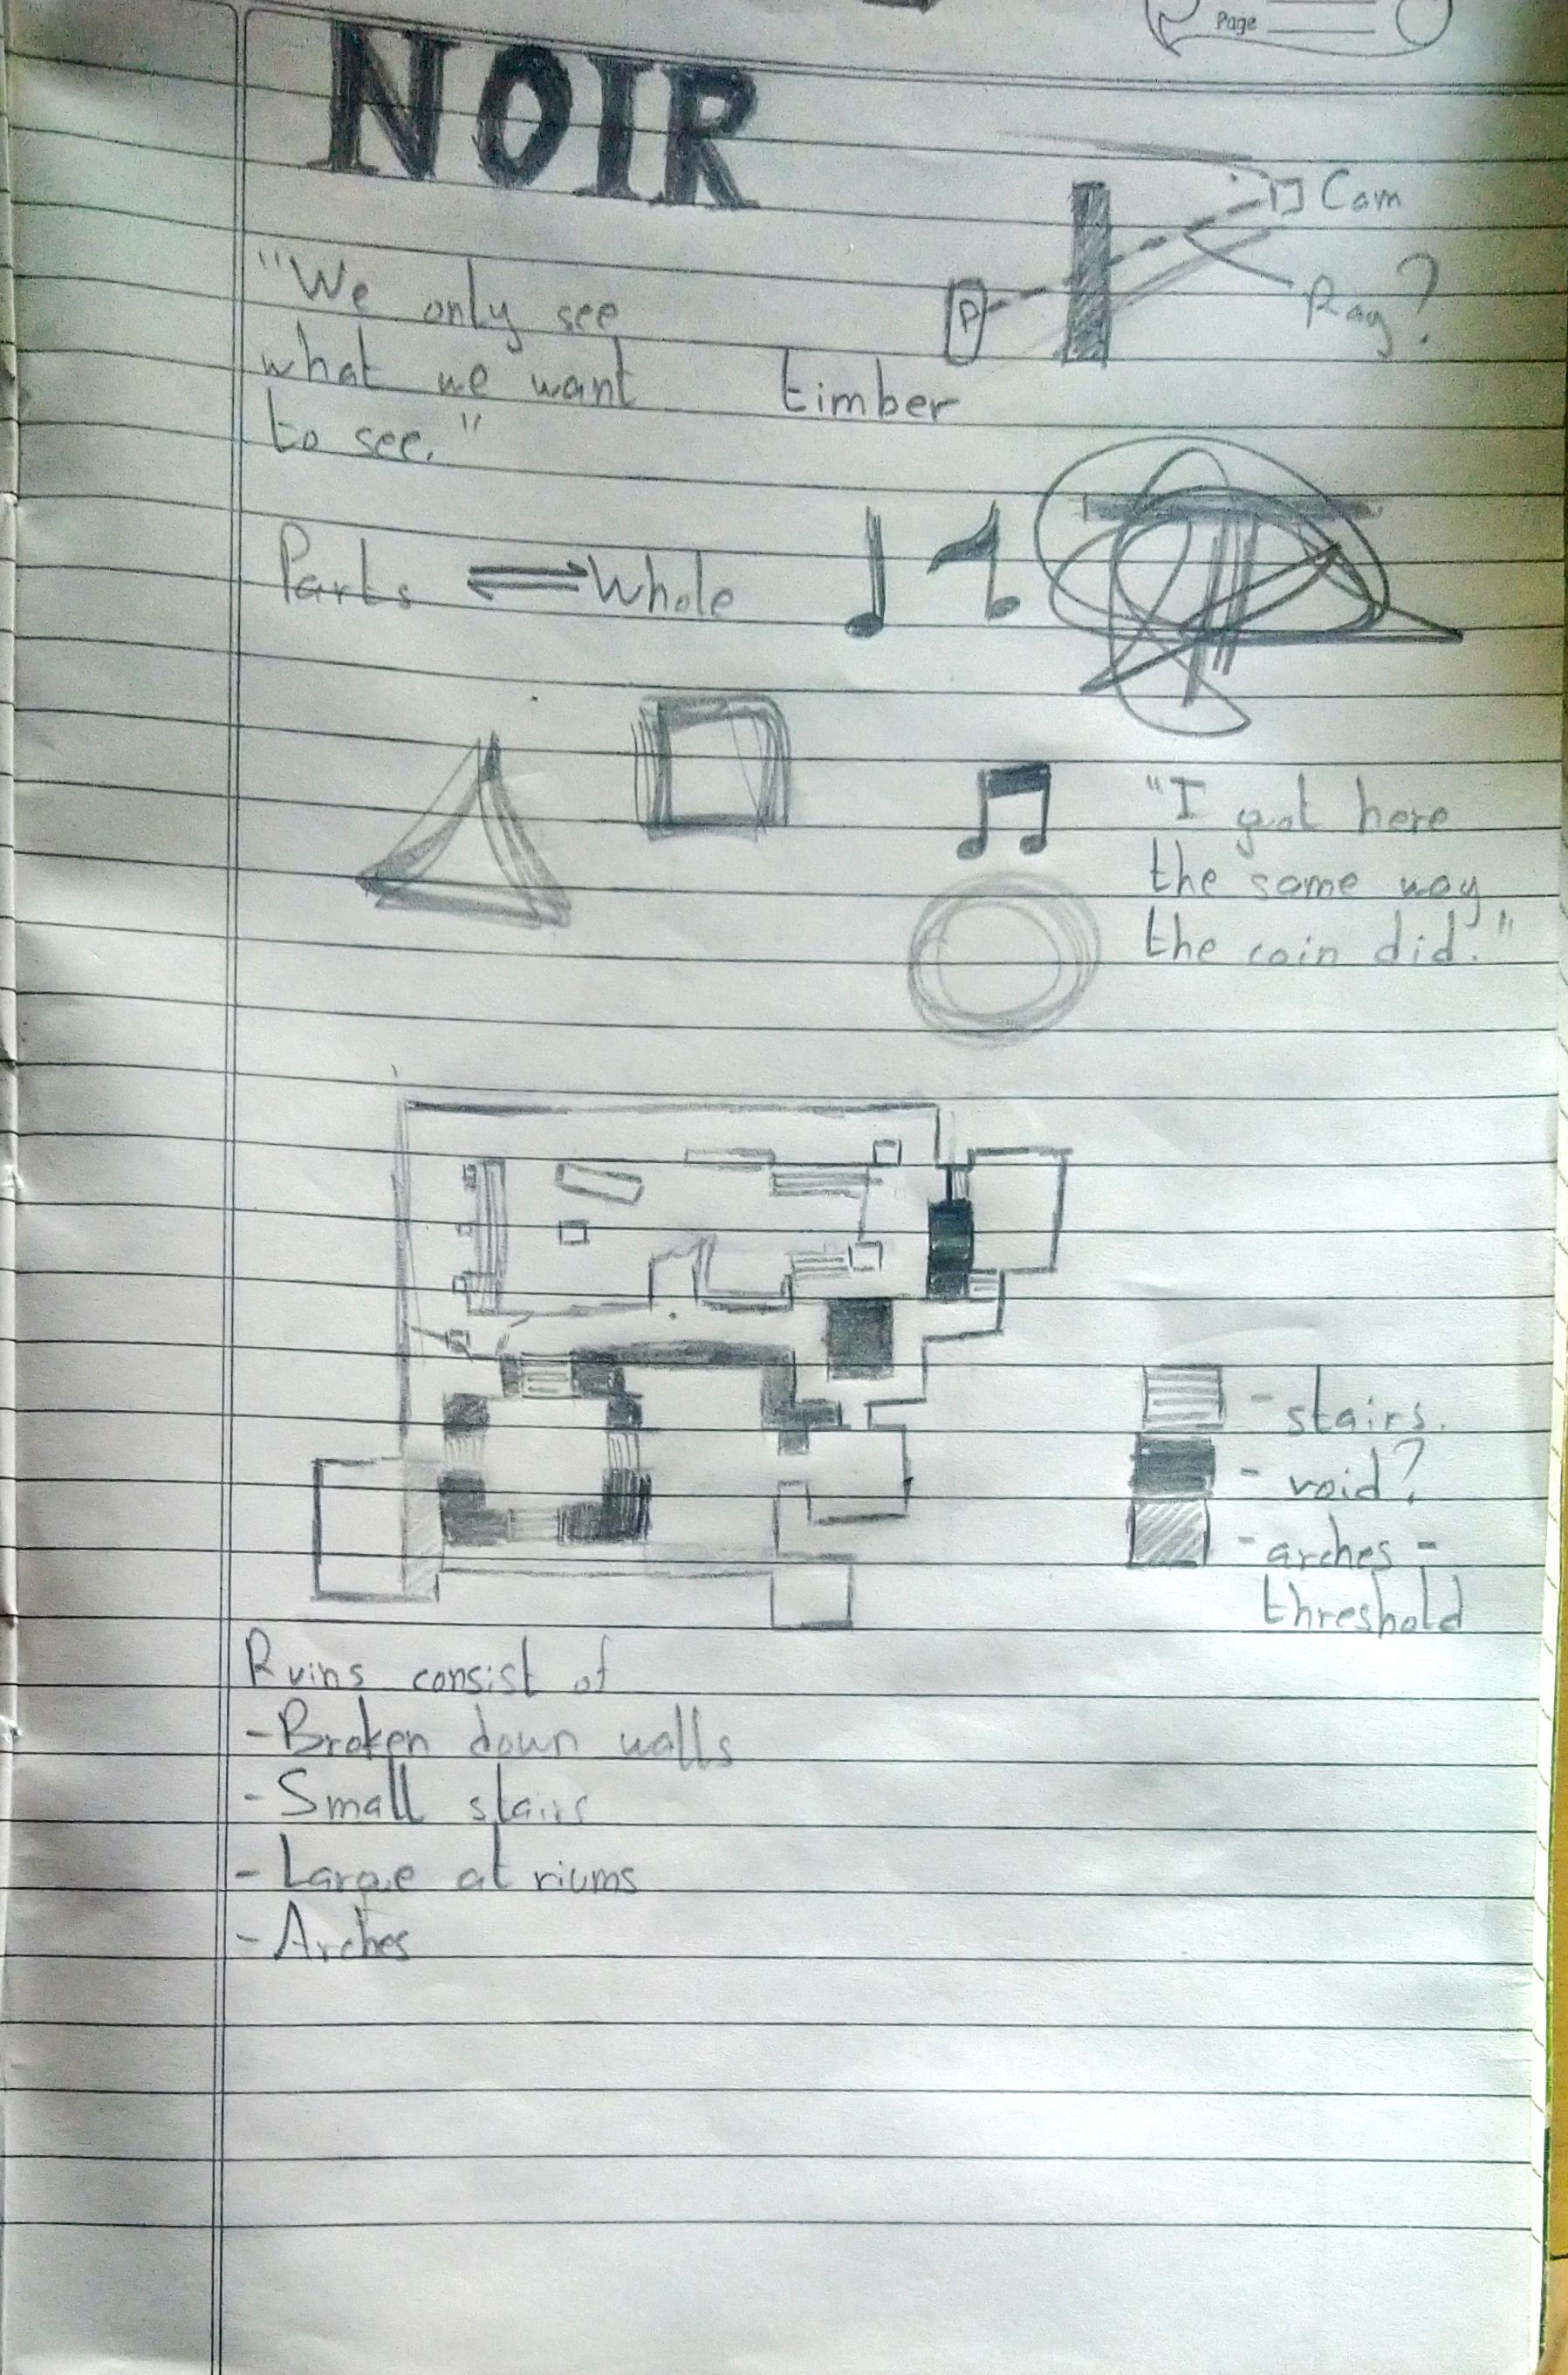 Page
NOIR
Cam
Ray?
P
"We only see
what we want
to see."
timber
Parts ⇌ Whole
"I got here
the same way
the coin did."
- stairs.
- void?
- arches -
threshold
Ruins consist of
- Broken down walls
- Small stairs
- Large atriums
- Arches